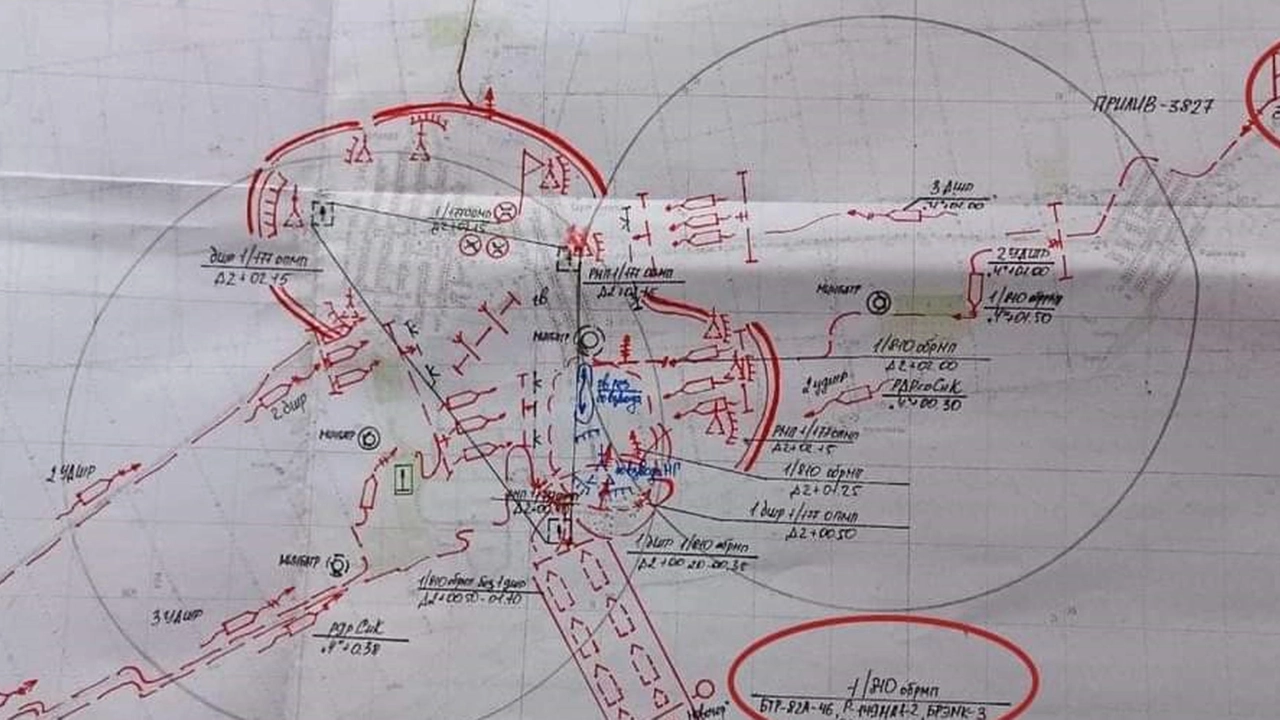 ПРИЛИВ-3827
3 ДШР
"Ч"+01.00
1/177 ОПМП
Д2+02.15
2 УДШР
"Ч"+01.00
дшр 1/177 опмп
Д2+02.15
РНП 1/177 ОПМП
Д2+02.15
МИНБАТР
1/810 обрмп
"Ч"+01.50
МИНБАТР
1/810 обрмп
Д2+02.00
2 УДШР
РДРСпСиК
"Ч"+00.30
2 дшр
МИНБАТР
РНП 1/177 ОПМП
Д2+02.15
1/810 обрмп
Д2+01.25
2 УДШР
1 дшр 1/177 ОПМП
Д2+00.50
1 дшр 1/810 обрмп
Д2+00.20-00.35
МИНБАТР
1/810 обрмп без 1 дшр
Д2+00.50-01.10
3 УДШР
рдр СиК
"Ч"+0.38
1/810 обрмп
БТР-82А-46, Р-149МА1-2, БРЭМК-3